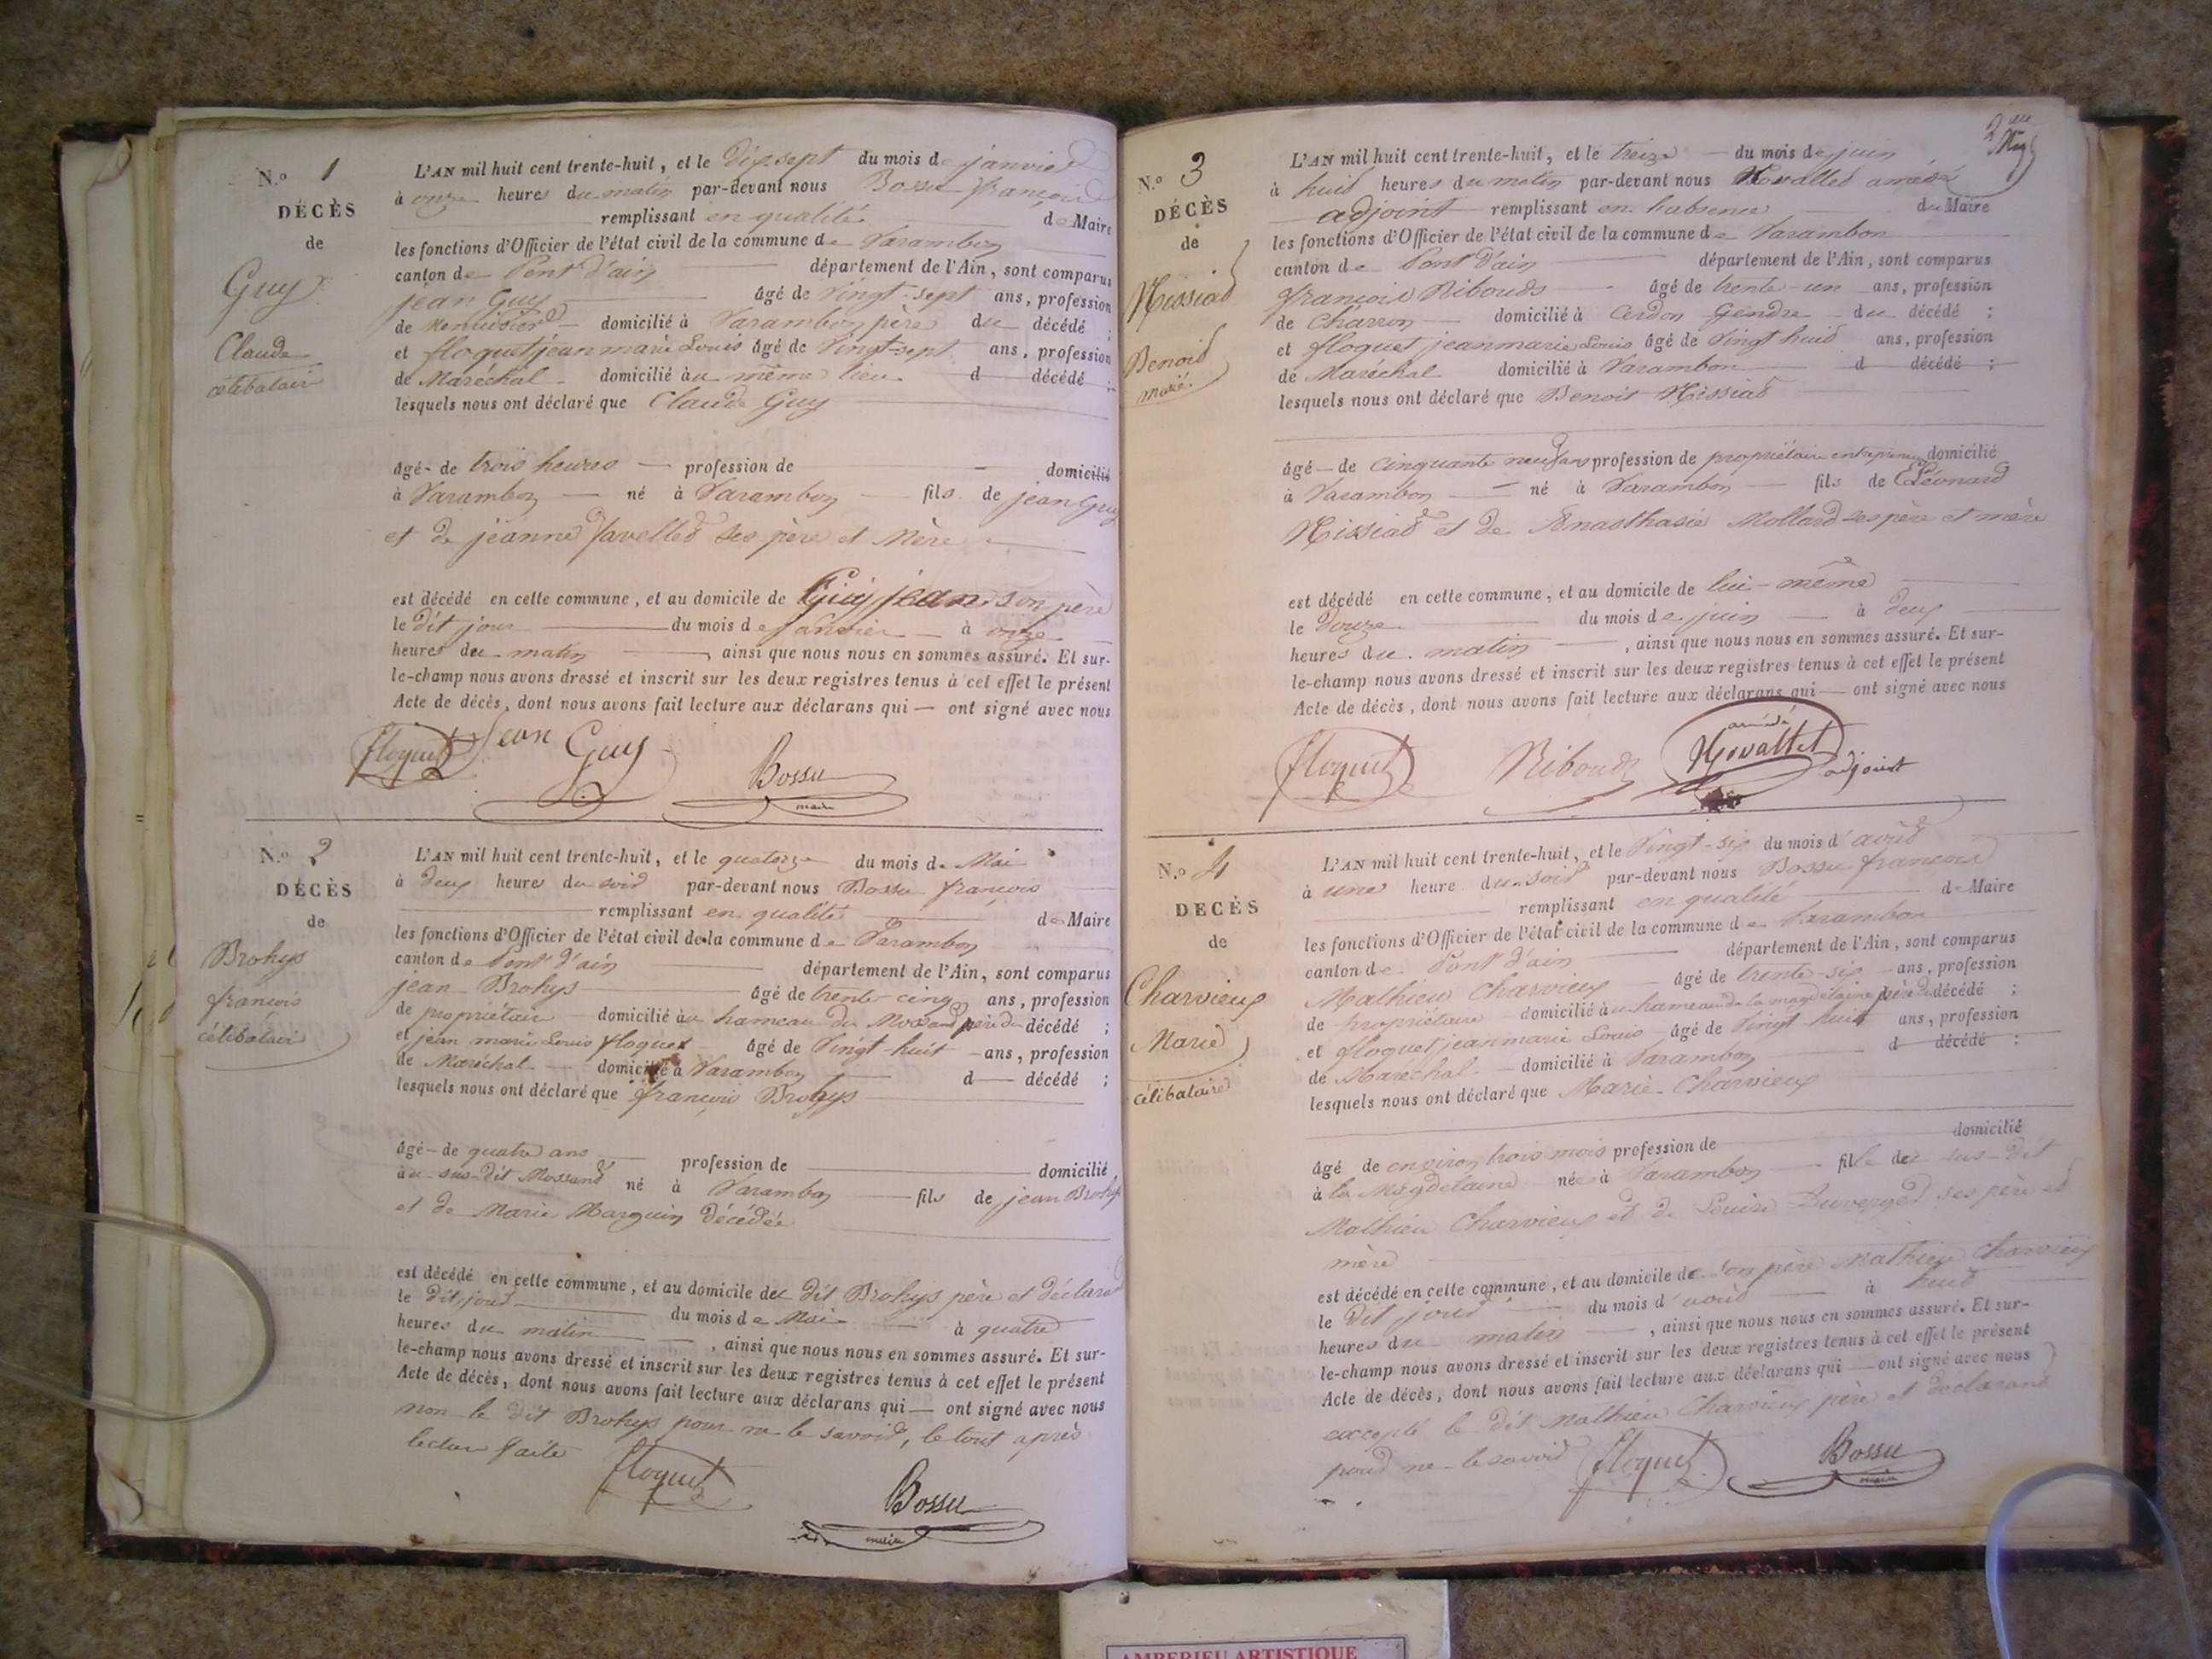 N.o 1
DÉCÈS
de
Guy
Claude
célibatair
L'AN mil huit cent trente-huit, et le dix-sept du mois de janvier
à onze heures du matin par-devant nous Bossu françois
remplissant en qualité de Maire
les fonctions d'Officier de l'état civil de la commune de Varambon
canton de Pont d'ain département de l'Ain, sont comparus
jean Guy âgé de Vingt-sept ans, profession
de Menuisier domicilié à Varambon père du décédé ;
et floquet jean marie Louis âgé de Vingt-sept ans, profession
de Maréchal domicilié au même lieu d décédé ;
lesquels nous ont déclaré que Claude Guy
âgé de trois heures profession de domicilié
à Varambon né à Varambon fils de jean Guy
et de jeanne ses père et Mère
est décédé en cette commune, et au domicile de Guy jean son père
le dit jour du mois de Janvier à onze
heures du matin , ainsi que nous nous en sommes assuré. Et sur-
le-champ nous avons dressé et inscrit sur les deux registres tenus à cet effet le présent
Acte de décès, dont nous avons fait lecture aux déclarans qui ont signé avec nous
floquet Jean Guy Bossu
maire
N.o 2
DÉCÈS
de
Brohys
françois
célibatair
L'AN mil huit cent trente-huit, et le quatorze du mois de Mai
à deux heures du soir par-devant nous Bossu françois
remplissant en qualité de Maire
les fonctions d'Officier de l'état civil de la commune de Varambon
canton de Pont d'ain département de l'Ain, sont comparus
jean Brohys âgé de trente-cinq ans, profession
de propriétair domicilié au hameau du Mossand père du décédé ;
et jean marie Louis floquet âgé de Vingt-huit ans, profession
de Maréchal domicilié à Varambon d décédé ;
lesquels nous ont déclaré que françois Brohys
âgé de quatre ans profession de domicilié
au sus-dit Mossand né à Varambon fils de jean Brohys
et de Marie Marguin décédée
est décédé en cette commune, et au domicile du dit Brohys père et déclarant
le dit jour du mois de Mai à quatre
heures du matin , ainsi que nous nous en sommes assuré. Et sur-
le-champ nous avons dressé et inscrit sur les deux registres tenus à cet effet le présent
Acte de décès, dont nous avons fait lecture aux déclarans qui ont signé avec nous
non le dit Brohys pour ne le savoir, le tout après
lecture faite floquet
Bossu
maire
N.o 3
DÉCÈS
de
Benoit
marié
L'AN mil huit cent trente-huit, et le treize du mois de juin
à huit heures du matin par-devant nous amédé
adjoint remplissant en l'absence du Maire
les fonctions d'Officier de l'état civil de la commune de Varambon
canton de Pont d'ain département de l'Ain, sont comparus
françois Riboud âgé de trente-un ans, profession
de Charron domicilié à Cerdon Gendre du décédé ;
et floquet jean marie Louis âgé de Vingt huit ans, profession
de Maréchal domicilié à Varambon d décédé ;
lesquels nous ont déclaré que Benoit
âgé de cinquante neuf ans profession de propriétaire entrepreneur domicilié
à Varambon né à Varambon fils de Léonard
et de Anasthasie Mollard ses père et mère
est décédé en cette commune, et au domicile de lui-même
le douze du mois de juin à deux
heures du matin , ainsi que nous nous en sommes assuré. Et sur-
le-champ nous avons dressé et inscrit sur les deux registres tenus à cet effet le présent
Acte de décès, dont nous avons fait lecture aux déclarans qui ont signé avec nous
floquet Riboud amédé adjoint
N.o 4
DECÈS
de
Charvieux
Marie
célibataire
L'AN mil huit cent trente-huit, et le Vingt-six du mois d'août
à une heure du soir par-devant nous Bossu françois
remplissant en qualité de Maire
les fonctions d'Officier de l'état civil de la commune de Varambon
canton de Pont d'ain département de l'Ain, sont comparus
Mathieu Charvieux âgé de trente-six ans, profession
de propriétaire domicilié au hameau de la magdelaine père de décédé ;
et floquet jean marie Louis âgé de Vingt huit ans, profession
de Maréchal domicilié à Varambon d décédé ;
lesquels nous ont déclaré que Marie Charvieux
âgé de environ trois mois profession de domicilié
à la Magdelaine née à Varambon fille de sus-dit
Mathieu Charvieux et de Louise Duverger ses père et
mère
est décédé en cette commune, et au domicile de son père Mathieu Charvieux
le dit jour du mois d'août à huit
heures du matin , ainsi que nous nous en sommes assuré. Et sur-
le-champ nous avons dressé et inscrit sur les deux registres tenus à cet effet le présent
Acte de décès, dont nous avons fait lecture aux déclarans qui ont signé avec nous
excepté le dit Mathieu Charvieux père et déclarant
pour ne le savoir floquet Bossu
maire
AMBERIEU ARTISTIQUE